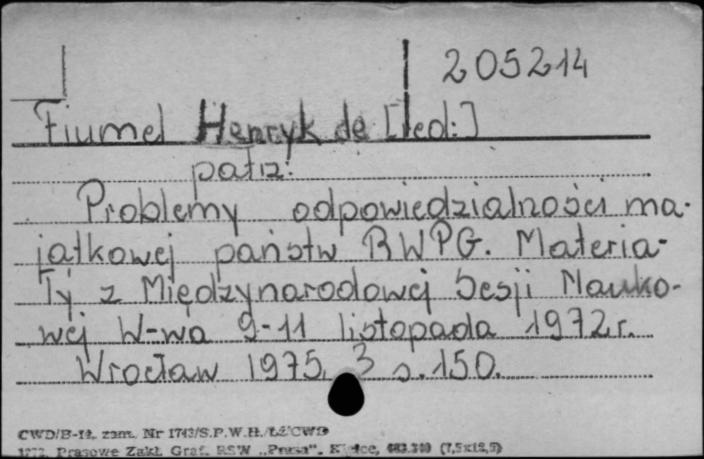 205214
Fiumel Henryk de [red:]
patrz:
Problemy odpowiedzialności ma-
jątkowej państw RWPG. Materia-
ły z Międzynarodowej Sesji Nauko-
wej W-wa 9-11 listopada 1972r.
Wrocław 1975, 3 s. 150.
CWD/B-14. zam. Nr 1743/S.P.W.H./ŁŻ/CWD
Prasowe Zakł. Graf. RSW „Prasa", Kielce, (7,5x12,5)